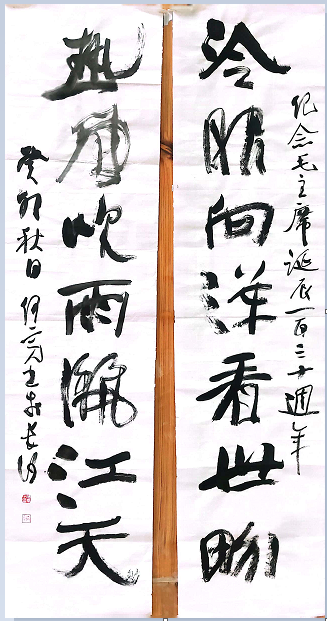 纪念毛主席诞辰一百三十週年
冷眼向洋看世界
热風吹雨灑江天
癸卯秋日